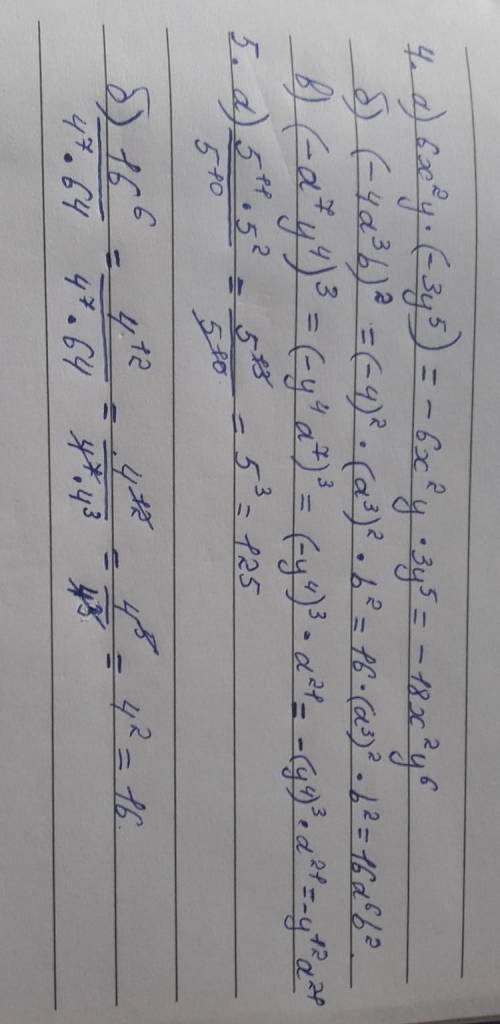 4. а) 6x²y · (-3y⁵) = - 6x²y · 3y⁵ = - 18x²y⁶
б) (-4a³b)² = (-4)² · (a³)² · b² = 16 · (a³)² · b² = 16a⁶b².
в) (-a⁷y⁴)³ = (-y⁴a⁷)³ = (-y⁴)³ · a²¹ = -(y⁴)³ · a²¹ = -y¹²a²¹
5. а) 5¹¹ · 5² / 5¹⁰ = 5¹³ / 5¹⁰ = 5³ = 125
б) 16⁶ / 4⁷ · 64 = 4¹² / 4⁷ · 64 = 4¹² / 4⁷ · 4³ = 4⁵ / 4³ = 4² = 16.